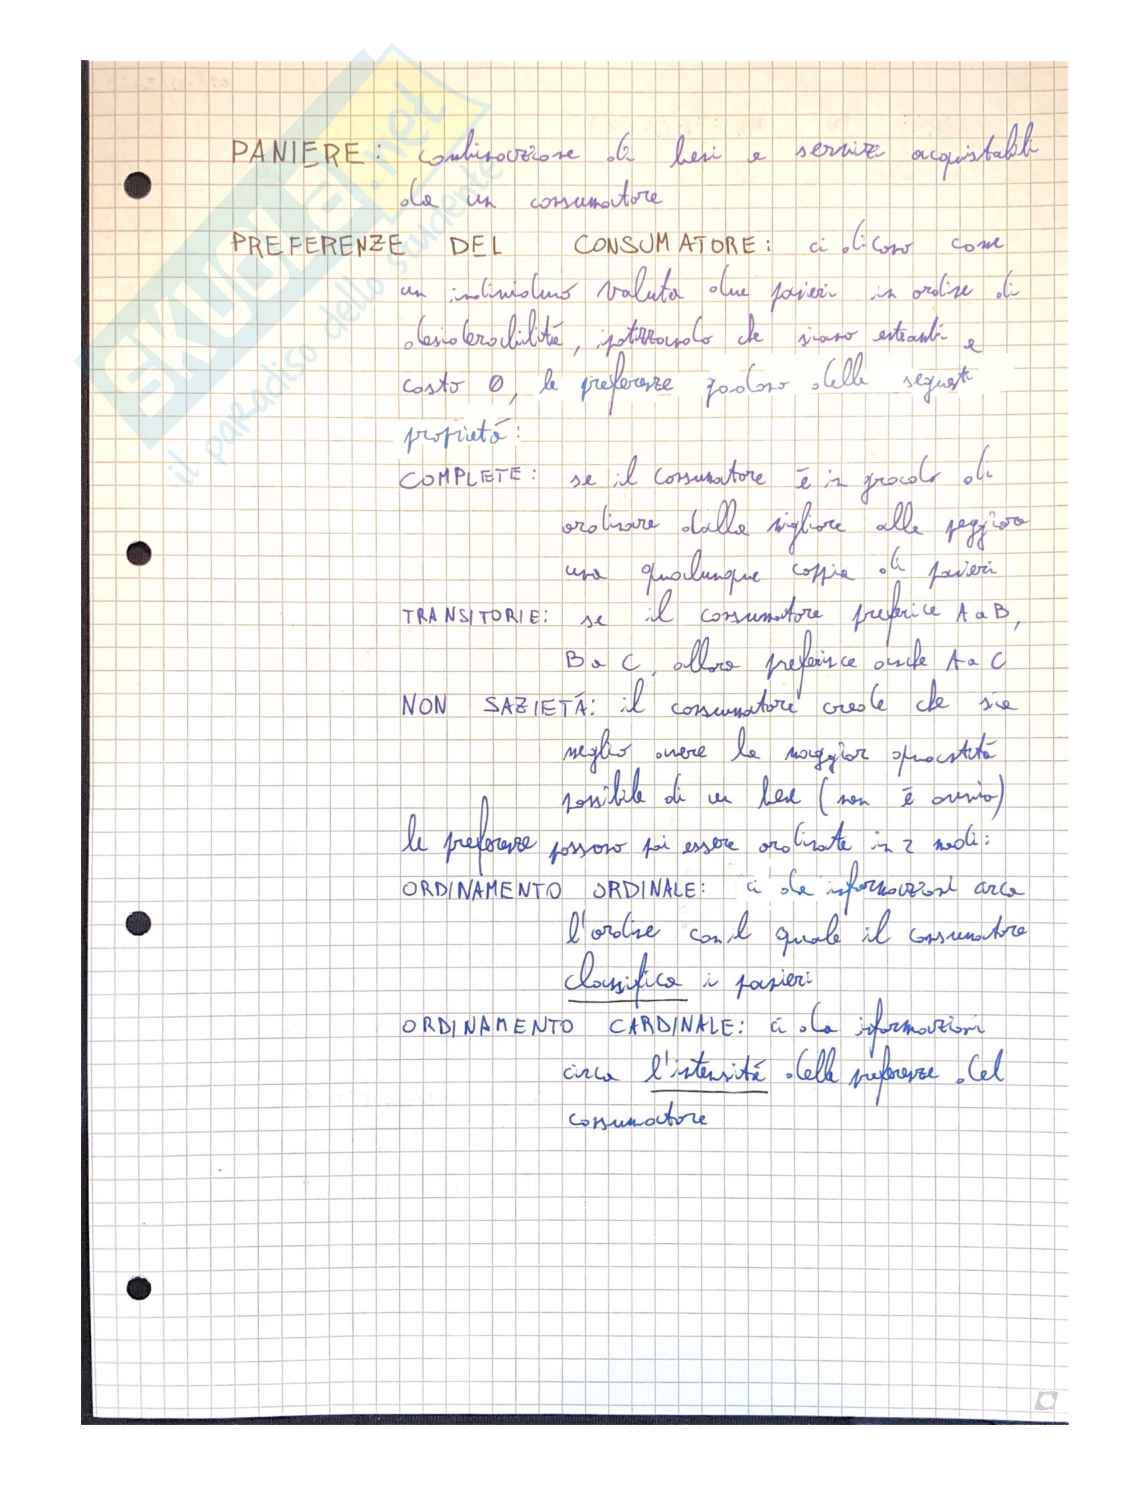 PANIERE: combinazione di beni e servizi acquistabili
da un consumatore
PREFERENZE DEL CONSUMATORE: ci dicono come
un individuo valuta due panieri in ordine di
desiderabilitá, ipotizzando che siano entrambi a
costo 0, le preferenze godono delle seguenti
proprietá:
COMPLETE: se il consumatore é in grado di
ordinare dalla migliore alle peggiore
una qualunque coppia di panieri
TRANSITORIE: se il consumatore preferice A a B,
B a C, allora preferisce anche A a C
NON SAZIETÁ: il consumatore crede che sia
meglio avere la maggior quantitá
possibile di un bene (non é ovvio)
le preferenze possono poi essere ordinate in 2 modi:
ORDINAMENTO ORDINALE: ci da informazioni circa
l'ordine con il quale il consumatore
classifica i panieri
ORDINAMENTO CARDINALE: ci da informazioni
circa l'intensitá delle preferenze del
consumatore
SKUOLA.net
il paradiso dello studente